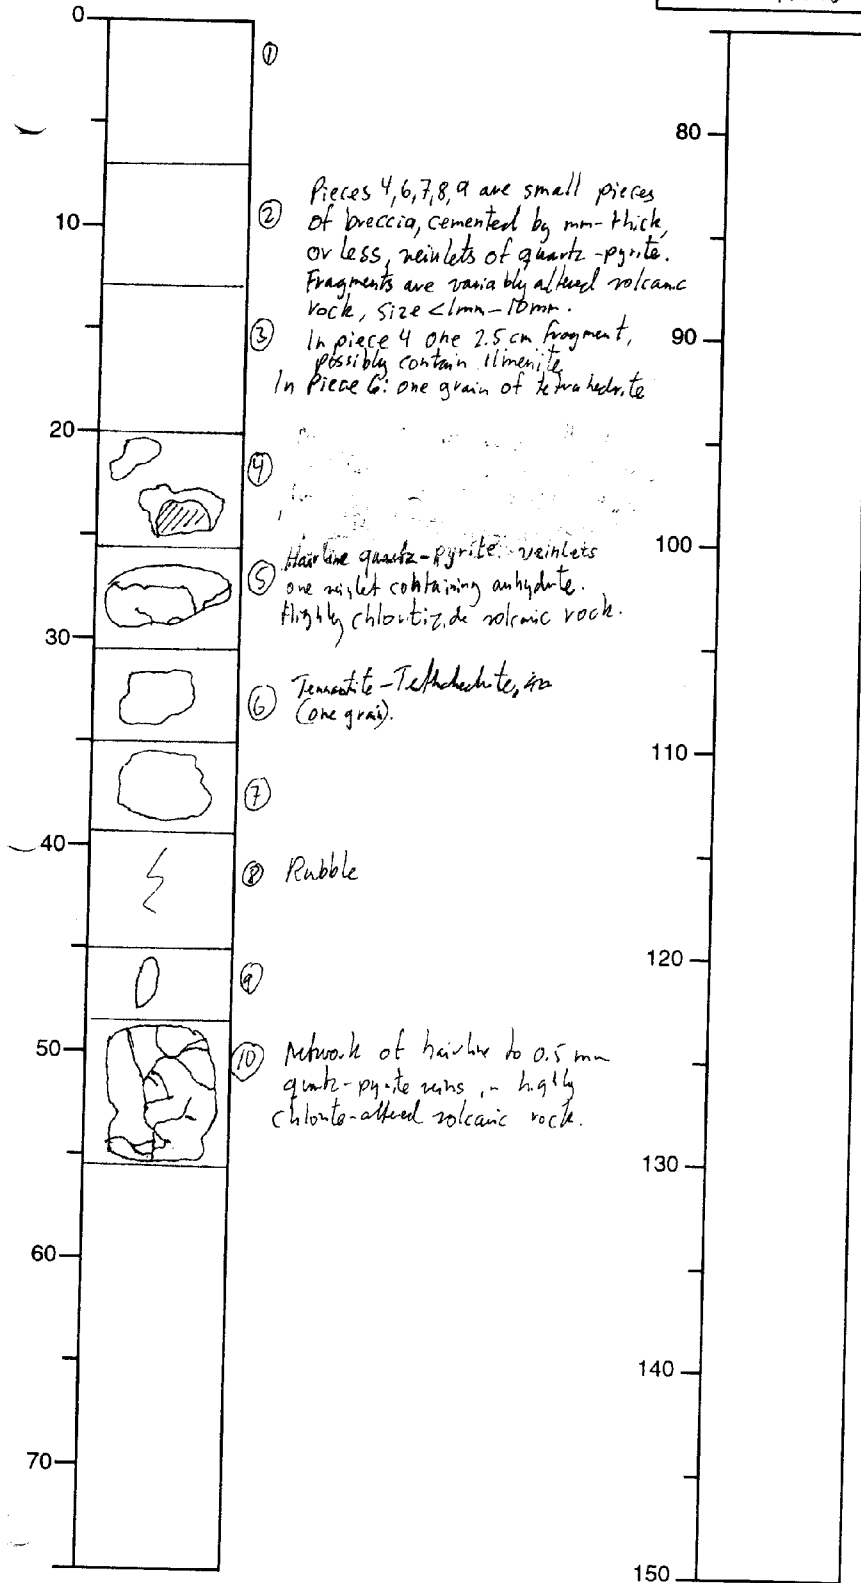 0
①
10
②
Pieces 4,6,7,8,9 are small pieces
of breccia, cemented by mm-thick,
or less, veinlets of quartz-pyrite.
Fragments are variably altered volcanic
rock, size <1mm-10mm.
③
In piece 4 one 2.5 cm fragment,
possibly contain Ilmenite
In Piece 6: one grain of tetrahedrite
20
④
⑤
Hairline quartz-pyrite veinlets
one veinlet containing anhydrite.
Highly chloritizide volcanic rock.
30
⑥
Tennantite-Tethahedrite,
(one grain).
⑦
40
⑧ Rubble
⑨
50
⑩
Network of hairline to 0.5 mm
quartz-pyrite veins in highly
chlorite-altered volcanic rock.
60
70
80
90
100
110
120
130
140
150